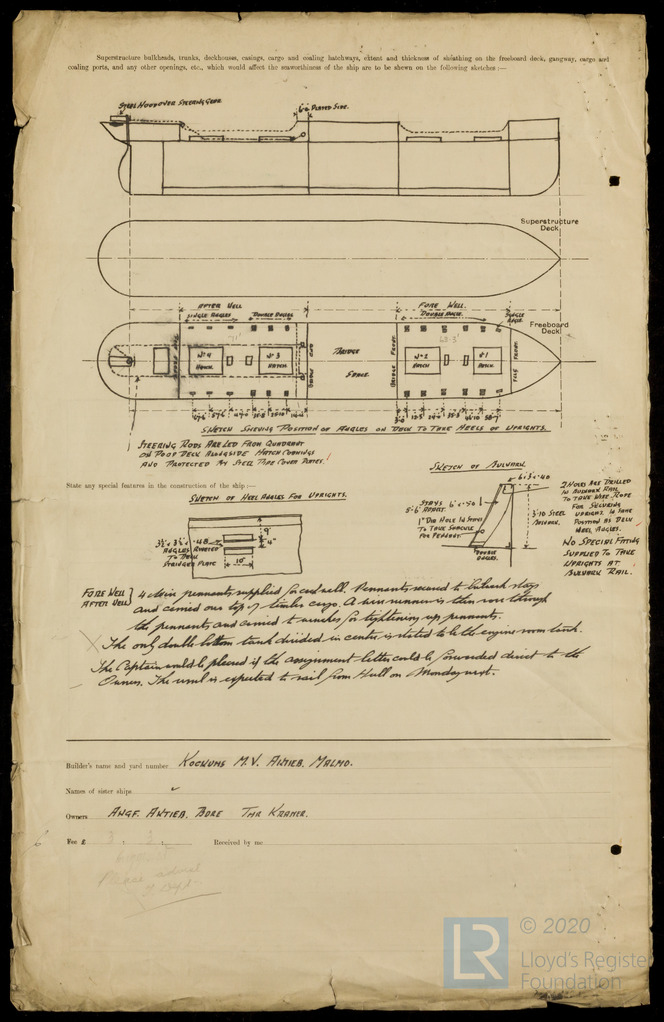 Superstructure bulkheads, trunks, deckhouses, casings, cargo and coaling hatchways, extent and thickness of sheathing on the freeboard deck, gangway, cargo and
coaling ports, and any other openings, etc., which would affect the seaworthiness of the ship are to be shewn on the following sketches :—
STEEL HOOD OVER STEERING GEAR
6'0 PLATED SIDE.
Superstructure
Deck
AFTER WELL
SINGLE ANGLES
DOUBLE ANGLES
FORE WELL.
DOUBLE ANGLE.
SINGLE
ANGLE.
Freeboard
Deck
No 4
HATCH.
No 3
HATCH
BRIDGE
SPACE.
BRIDGE FRONT.
No 2
HATCH.
No 1
HATCH.
SKETCH SHEWING POSITION OF ANGLES ON DECK TO TAKE HEELS OF UPRIGHTS.
STEERING RODS ARE LED FROM QUADRANT
ON POOP DECK ALONGSIDE HATCH COAMINGS
AND PROTECTED BY STEEL TYPE COVER PLATES.
State any special features in the construction of the ship :—
SKETCH OF HEEL ANGLES FOR UPRIGHTS.
3½ x 3½ x .48
ANGLES RIVETED
TO DECK
STRINGER PLATE
9"
4"
10"
SKETCH OF BULWARK
6 x 3 x .40
STAYS 6" x .50
5'-6" APART.
1" DIA HOLE IN STAYS
TO TAKE SHACKLE
FOR PENNANT.
DOUBLE
ANGLES.
3'-10 STEEL
BULWARK.
2 HOLES ARE DRILLED
IN BULWARK RAIL
TO TAKE WIRE ROPE
FOR SECURING
UPRIGHT IN SAME
POSITION AS DECK
HEEL ANGLES.
NO SPECIAL FITTING
SUPPLIED TO TAKE
UPRIGHTS AT
BULWARK RAIL.
FORE WELL } 4 chain pennants supplied for each well. Pennants secured to bulwark stays
AFTER WELL } and carried over top of timber cargo. A wire runner is then rove through
the pennants and carried to winches for tightening up pennants.
The only double bottom tank divided in center is stated to be the engine room tank.
The Captain would be pleased if the assignment letter could be forwarded direct to the
Owners. The vessel is expected to sail from Hull on Monday next.
Builder's name and yard number KOCKUMS M.V. AKTIEB. MALMO.
Names of sister ships
Owners ANGF. AKTIEB. BORE THR KRAMER.
Fee £ 3 : 3 : Received by me
© 2020
LR
Lloyd's Register
Foundation